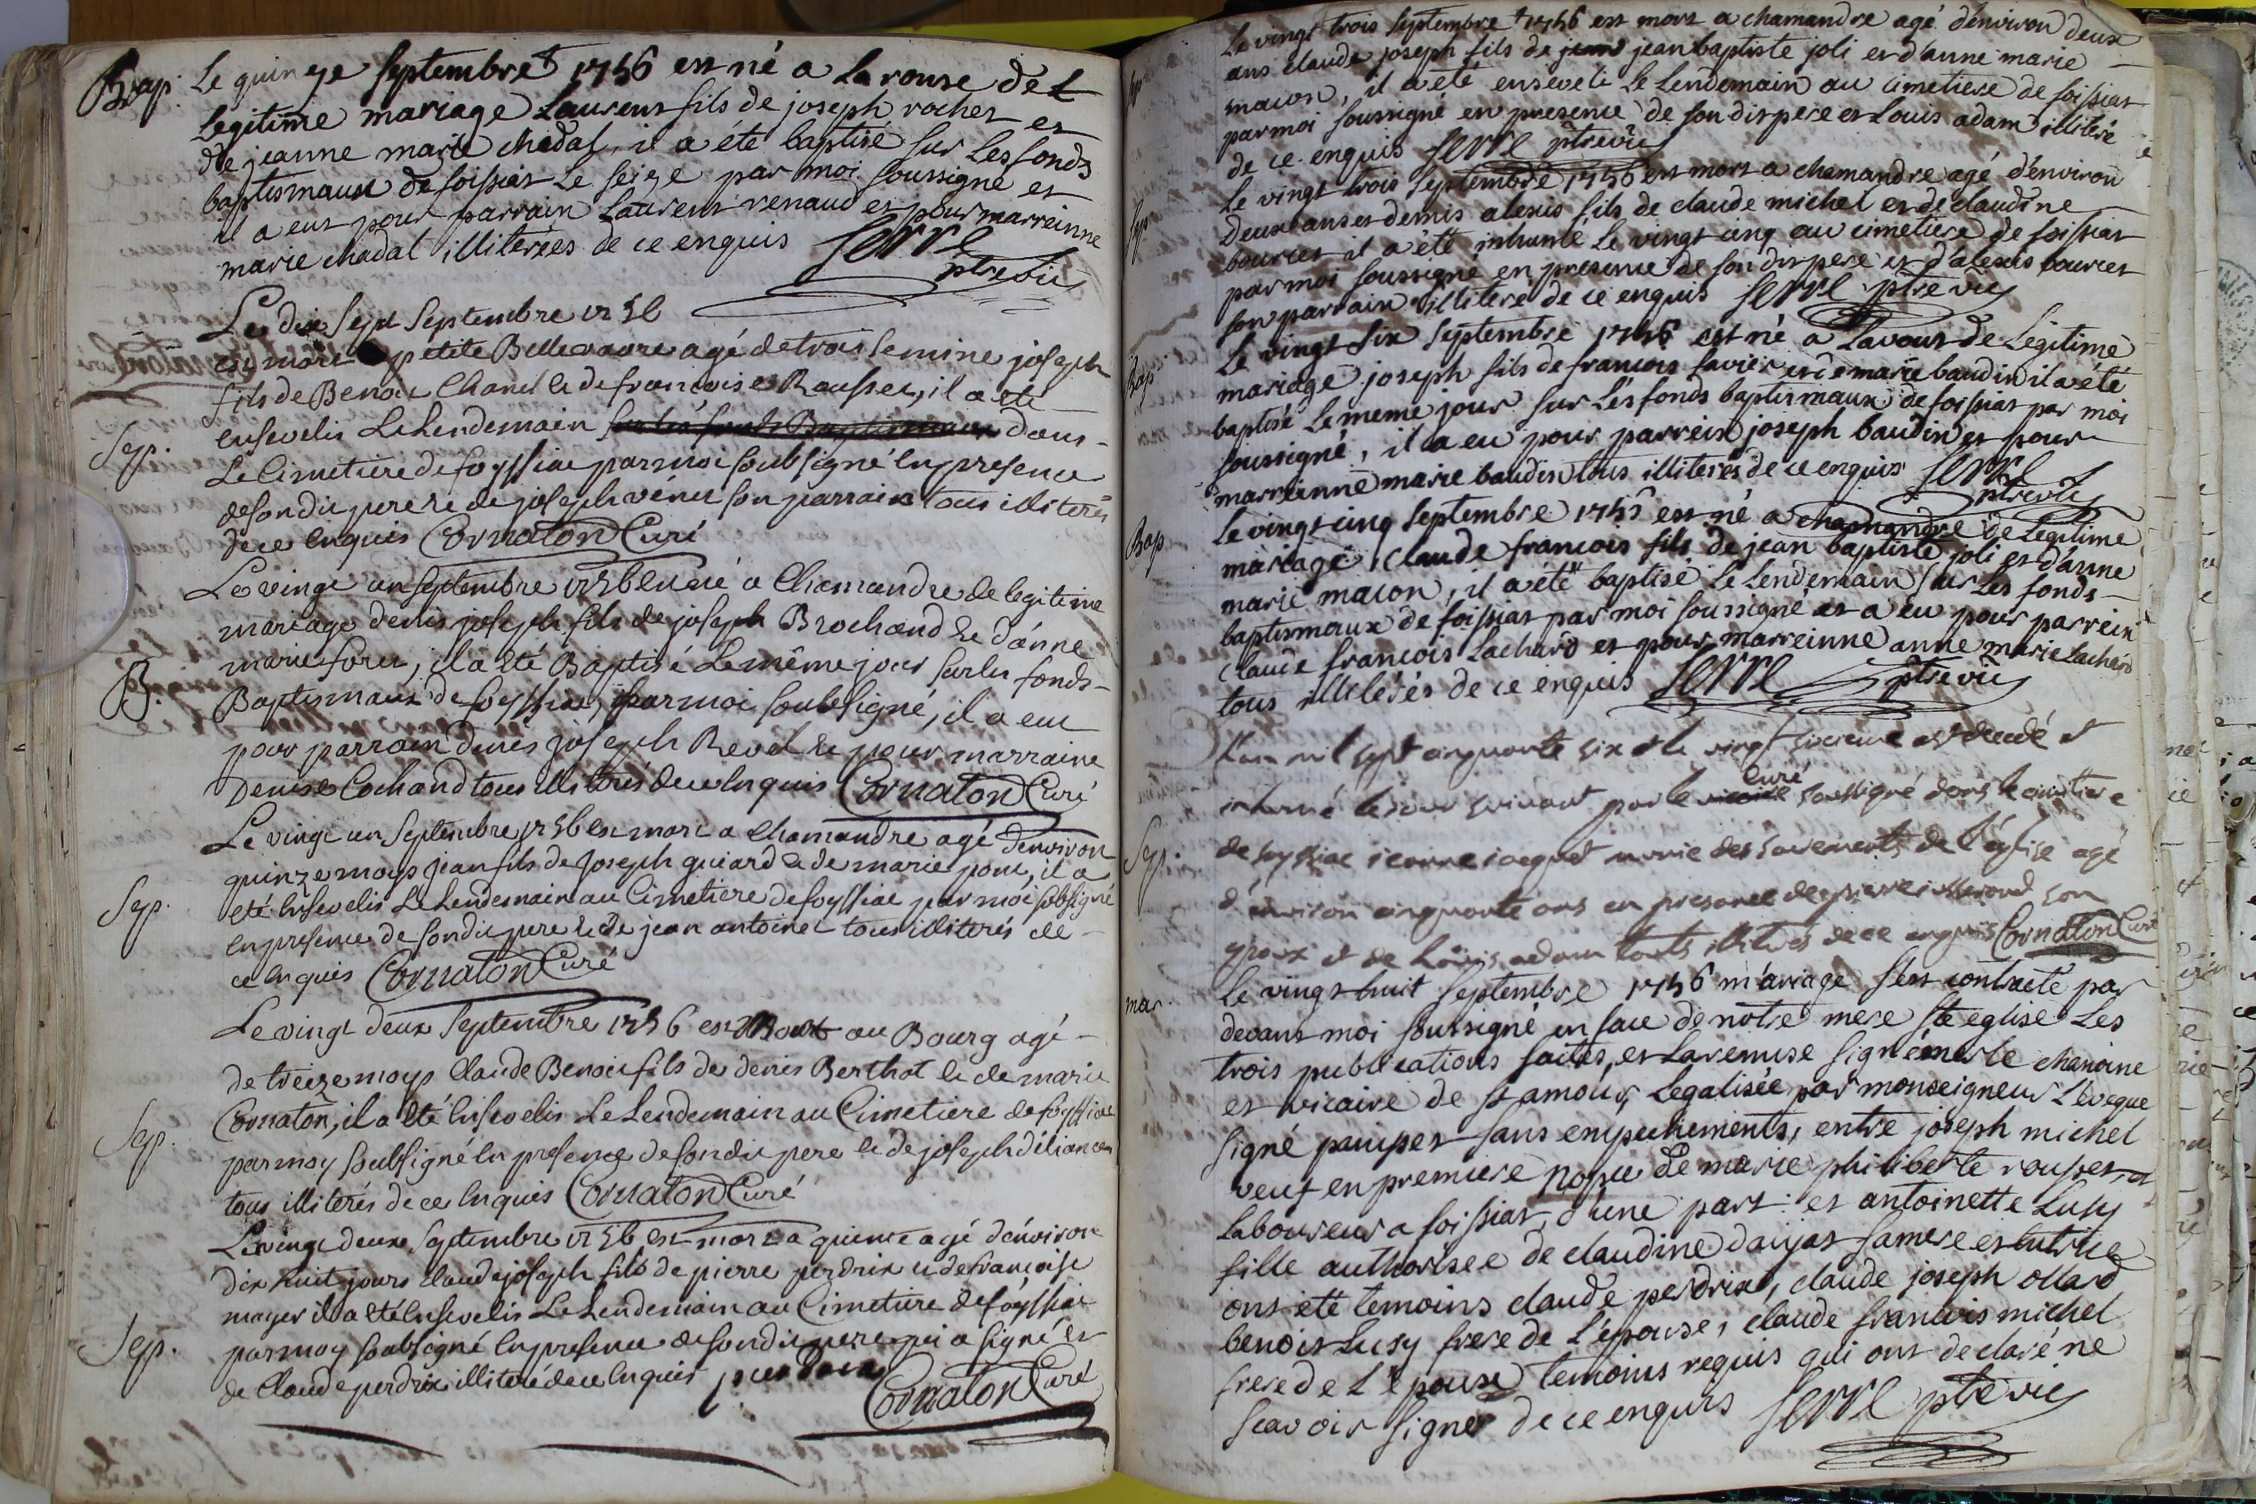 Bap. Le quinze septembre 1756 est né a La rouse de L
legitime mariage Laurent fils de joseph rochet et
de jeanne marie chadal, il a été baptisé sur Les fonds
baptismaux de foissiat Le seize par moi soussigné et
il a eut pour parrain Laurent renaud et pour marreinne
marie chadal illiterées de ce enquis Serre
ptre vic
Le dix sept Septembre 1756
est mort petite Bellevavre agé de trois semine joseph
fils de Benoit Chanel & de francoise Rousset, il a eté
ensevelis Le Lendemain sur les fonds Baptismaux dans
Sep. Le Cimetiere de foyssiac par moi soubsigné En presence
de son dit pere & de joseph vénet son parrain tous illiterés
de ce Enquis Cornaton Curé
Le vingt un septembre 1756 est né a Chamandre de legitime
mariage denis joseph fils de joseph Brochand & d'anne
marie foret, il a eté Baptisé Le même jour sur les fonds
B. Baptismaux de foyssiac, par moi soubsigné, il a eu
pour parrain denis joseph Revel & pour marraine
Denise Cochand tous illiterés de ce Enquis Cornaton Curé
Le vingt un Septembre 1756 est mort a Chamandre agé d'environ
quinze moys jean fils de Joseph guiard & de marie pont, il a
Sep. eté Ensevelis Le Lendemain au Cimetiere de foyssiac par moi sobsigné
En presence de son dit pere & de jean antoinet tous illiterés de
ce Enquis Cornaton Curé
Le vingt deux Septembre 1756 est Mort au Bourg agé
de treize moys Claude Benoit fils de denis Berthot & de marie
Cornaton, il a eté Ensevelis Le Lendemain au Cimetiere de foyssiac
Sep. par moy soubsigné En presence de son dit pere & de joseph diliance
tous illiterés de ce Enquis Cornaton Curé
Le vingt deux Septembre 1756 est mort a quinte agé d'environ
dix huit jours Claude joseph fils de pierre perdrix & de francoise
mayer il a eté Ensevelis Le Lendemain au Cimetiere de foyssiac
Sep. par moy soubsigné En presence de son dit pere qui a signé et
de Claude perdrix illiteré de ce Enquis perdrix
Cornaton Curé
Le vingt trois septembre 1756 est mort a chamandre agé d'environ deux
ans claude joseph fils de jean jean baptiste joli et d'anne marie
macon, il a été enseveli Le Lendemain au cimetiere de foissiat
par moi soussigné en presence de son dit pere et Louis adam illiteré
de ce enquis Serre ptre vic
Sep. Le vingt trois septembre 1756 est mort a chamandre agé d'environ
deux ans et demis alexis fils de claude michel et de claudine
bouriet il a été inhumé Le vingt cinq au cimetiere de foissiat
par moi soussigné en presence de son dit pere et d'alexis bouriet
son parrain illiteré de ce enquis Serre ptre vic
Bap. Le vingt six septembre 1756 est né a Lavout de Legitime
mariage joseph fils de francois favier et de marie baudin il a été
baptisé Le meme jour sur Les fonds baptismaux de foissiat par moi
soussigné, il a eu pour parrein joseph baudin et pour
marreinne marie baudin tous illiterés de ce enquis Serre
ptre vic
Bap Le vingt cinq septembre 1756 est né a chamandre de Legitime
mariage, claude francois fils de jean baptiste joli et d'anne
marie macon, il a été baptisé Le Lendemain sur Les fonds
baptismaux de foissiat par moi soussigné et a eu pour parrein
claude francois Lachard et pour marreinne anne marie Lachard
tous illeterés de ce enquis Serre ptre vic
L'an mil sept cinquante six et le vingt sixieme est decedé et
inhumé le jour suivant par le vicaire curé soussigné dans le cimetiere
Sep. de foyssiac jeanne jacquet munie des sacrements de l'église agé
d'environ cinquante ans en presence de pierre son
epoux et de Louis adam touts illitrés de ce enquis Cornaton Curé
mar. Le vingt huit septembre 1756 mariage s'est contracté par
devant moi soussigné en face de notre mere ste eglise Les
trois publications faites, et La remise signé merle chanoine
et vicaire de st amour, Legalisée par monseigneur L'eveque
signé paupet sans empechements, entre joseph michel
veuf en premiere nopce de marie philiberte rousset
Laboureur a foissiat, d'une part: et antoinette Lusy
fille authorisée de claudine daujat sa mere et tutrice
ont été temoins claude perdrix, claude joseph ollard
benoit Lusy frere de l'épouse, claude francois michel
frere de L'époux temoins requis qui ont declaré ne
scavoir signer de ce enquis Serre ptre vic